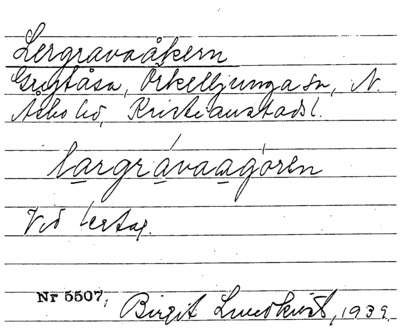 Lergravaåkern
Gryttåsa, Örkelljunga sn, N.
Åsbo hd, Kristianstads l.
largrávaagóren
Vid lertag.
Nr 5507, Birgit Lundkvist, 1939.